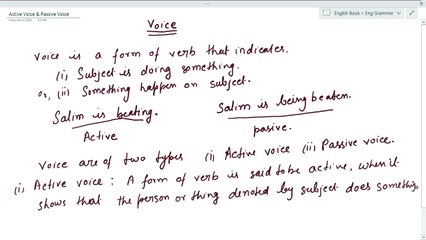 Active Voice & Passive Voice
English Book > Eng Grammer
Voice
Voice is a form of verb that indicates.
(i) Subject is doing something.
or, (ii) Something happen on subject.
Salim is beating. Salim is being beaten.
Active pasive.
Voice are of two types (i) Active voice (ii) Passive voice.
(i) Active voice : A form of verb is said to be active, when it
shows that the person or thing denoted by subject does something